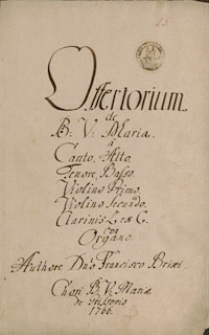 Offertorium.
de
B: V: Maria.
à
Canto, Alto,
Tenore, Basso,
Violino Primo,
Violino Secundo,
Clarinis 2. ex C.
Con
Organo.
Authore Dno Francisco Brixi
Chori B. V. Mariæ
de
1766.